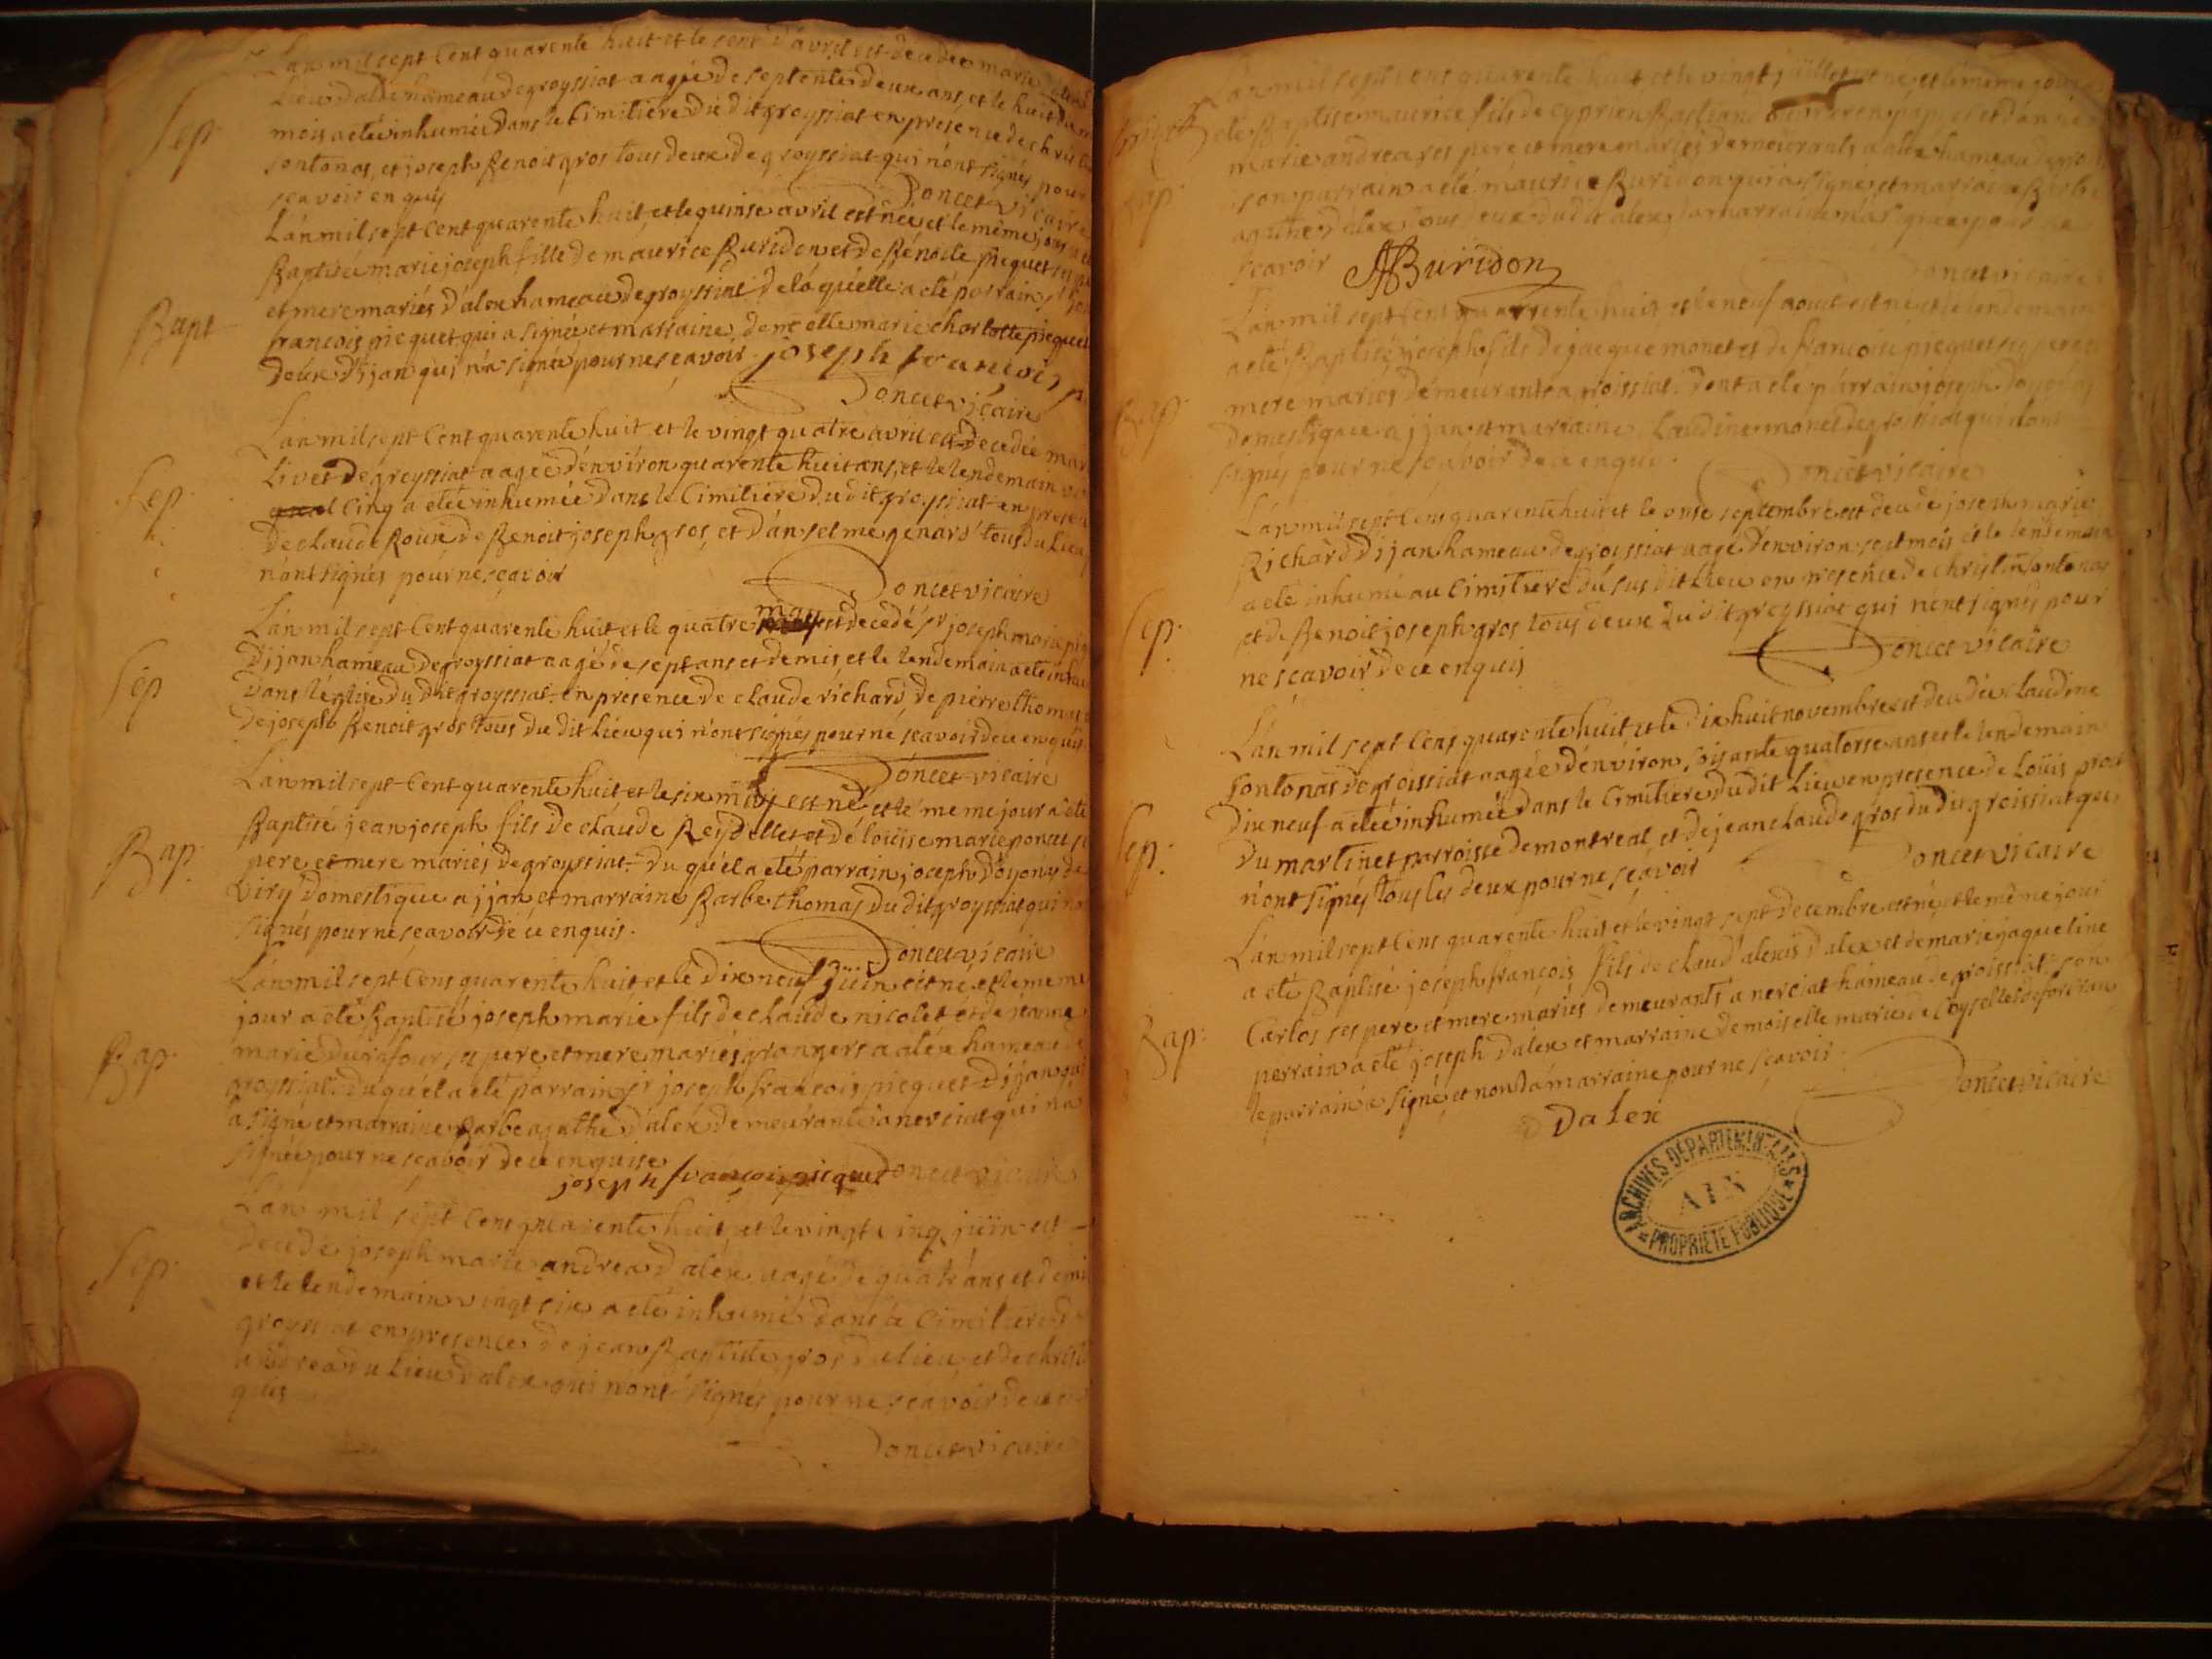 Lán mil sept Cent quarente huit et le sept d'avril est decedée marie
Lieu d'alex hameau de groyssiat aagée de septente deux ans, et le huit du
Sep: mois a eté inhumée dans le Cimitiere du dit groyssiat en presence de christin
fontonas, et joseph Benoit gros tous deux de groyssiat qui n'ont signés pour
scavoir enquis Poncet vicaire
Lán mil sept Cent quarente huit et le quinse avril est née et le même jour a eté
Baptisée marie joseph fille de maurice Buridon et de Benoite picquet ses
Bapt et mere mariés d'alex hameau de groyssiat de láquélle a eté parrain
francois picquet qui a signée et marraine demoiselle marie charlotte picquet
deux d'ijan qui n'a signée pour ne scavoir. joseph francois p
Poncet vicaire
Lán mil sept Cent quarente huit et le vingt quatre avril est decedée mar
Livet de groyssiat aagée d'environ quarente huit ans, et le lendemain
Sep: Cinq a eté inhumée dans le Cimitiere du dit groyssiat en presence
de claude Roux de Benoit joseph gros, et d'anselme genard tous du Lieu
n'ont signés pour ne scavoir Poncet vicaire
Lán mil sept Cent quarente huit et le quatre may est decedé sr joseph marie
Sep d'ijan hameau de groyssiat aagé de sept ans et demis et le lendemain a eté inhu
dans l'église du dit groyssiat en presence de claude richard, de pierre thomas
de joseph Benoit gros tous du dit Lieu qui n'ont signés pour ne scavoir de ce enquis
Poncet vicaire
Lán mil sept Cent quarente huit et le six may est né et le meme jour a eté
Bap: Baptisé jean joseph fils de claude Reydellet et de loüise marie poncet
pere et mere mariés de groyssiat: du quél a eté parrain joseph doyonas de
Viry domestique a ijan, et marraine Barbe thomas du dit groyssiat qui
signés pour ne scavoir de ce enquis.
Poncet vicaire
Lán mil sept Cens quarente huit et le dix neuf Jüin est né, et le meme
jour a eté Baptisé joseph marie fils de claude nicolet et de jeanne
Bap: marie durafour, ses pere et mere mariés grangers a alex hameau de
groyssiat. du quél a eté parrain sr joseph francois picquet d'ijan qui
a signé et marraine Barbe agathe d'alex demeurante a nerciat qui n'a
signée pour ne scavoir de ce enquise
joseph francois picquet Poncet vicaire
Lán mil sept Cens quarente huit, et le vingt cinq jüin est
Sep: decedé joseph marie andrea d'alex aagé de quatre ans et demi
et le lendemain vingt six a eté inhumé dans le Cimitiere de
groyssiat en presence de jean Baptiste gros du lieu et de christ
andrea du Lieu d'alex qui n'ont signés pour ne scavoir de ce en
quis
Poncet vicaire
Lán mil sept Cens quarente huit et le vingt juillet est né, et le meme jour
eté Baptisé maurice fils de cyprien Bastiand
marie andrea ses pere et mere mariés demeurants a alex hameau de
Bap: son parrain a eté maurice Buridon qui a signé, et marraine Barbe
agathe d'alex tous deux du dit alex, la marraine n'a signée pour ne
scavoir ABuridon
Poncet vicaire
Lán mil sept Cens quarente huit et le neuf aout est né et le lendemain
a eté Baptisé joseph fils de jacque monet et de francoise picquet ses pere et
Bap: mere mariés demeurants a groissiat. dont a eté parrain joseph doyonas
domestique a ijan et marraine Claudine monet de groissiat qui n'ont
signés pour ne scavoir de ce enquis. Poncet vicaire
Lán mil sept Cens quarente huit et le onse septembre est decedé joseph marie
Richard d'ijan hameau de groyssiat aagé d'environ sept mois et le lendemain
a eté inhumé au Cimitiere du sus dit Lieu en presence de christin fontonas
Sep: et de Benoit joseph gros tous deux du dit groyssiat qui n'ont signés pour
ne scavoir de ce enquis Poncet vicaire
Lán mil sept Cens quarente huit et le dix huit novembre est decedée Claudine
fontonas de groissiat aagée d'environ soisante quatorse ans et le lendemain
dix neuf a eté inhumée dans le Cimitiere du dit Lieu en presence de Loüis
Sep: du martinet parroisse de montreal et de jean claude gros du dit groissiat qui
n'ont signés tous les deux pour ne scavoir Poncet vicaire
Lán mil sept Cens quarente huit et le vingt sept decembre est né, et le même jour
a eté Baptisé joseph françois fils de claud'alexis d'alex et de marie jaqueline
Bap: Carlos ses pere et mere mariés demeurants a nerciat hameau de groissiat son
perrain a eté joseph d'alex et marraine demoiselle marie de Coysellet
le parrain a signé et non la marraine pour ne scavoir
Dalex Poncet vicaire
ARCHIVES DEPARTEMENTALES
AIN
PROPRIETE PUBLIQUE